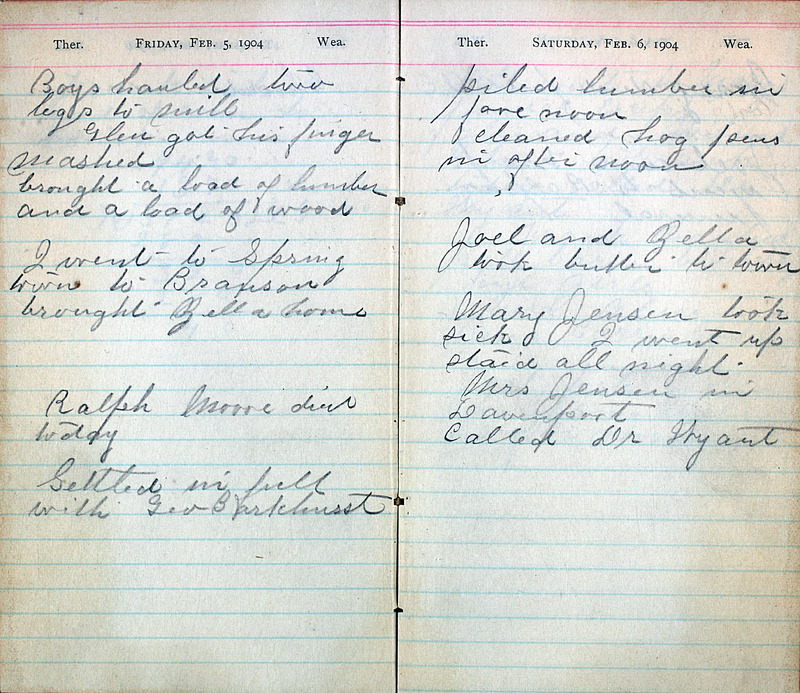 Ther. FRIDAY, FEB. 5, 1904 Wea.
Boys hauled two
logs to mill
Glen got his finger
mashed
brought a load of lumber
and a load of wood
I went to Spring
town to Branson
brought Zella home
Ralph Moore died
today
Settled in full
with Geo Barkhurst
Ther. SATURDAY, FEB. 6, 1904 Wea.
piled lumber in
fore noon
cleaned hog pens
in after noon
Joel and Zella
took butter to town
Mary Jensen took
sick I went up
staid all night
Mrs Jensen in
Davenport
Called Dr Wyant